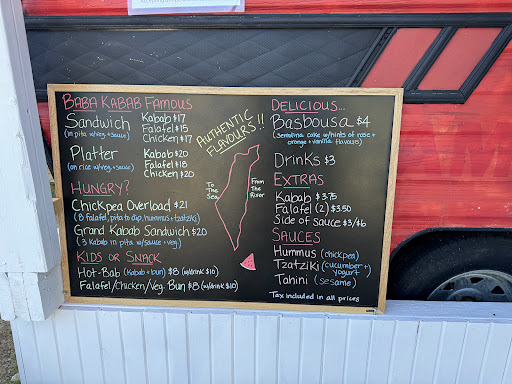 BABA KABAB FAMOUS
Sandwich
(in pita w/veg + sauce)
Kabab $17
Falafel $15
Chicken $17
Platter
(on rice w/veg + sauce)
Kabab $20
Falafel $18
Chicken $20
HUNGRY?
Chickpea Overload $21
(8 falafel, pita to dip, hummus + tzatziki)
Grand Kabab Sandwich $20
(3 kabab in pita w/sauce + veg)
KIDS OR SNACK
Hot-Bab (kabab + bun) $8 (w/drink $10)
Falafel/Chicken/Veg. Bun $8 (w/drink $10)
AUTHENTIC
FLAVOURS!!
To
The
Sea
From
The
River
DELICIOUS...
Basbousa $4
Semolina cake w/hints of rose +
orange + vanilla flavours)
Drinks $3
EXTRAS
Kabab $3.75
Falafel (2) $3.50
Side of sauce $3/$6
SAUCES
Hummus (chickpea)
Tzatziki (cucumber +
yogurt)
Tahini (sesame)
Tax included in all prices